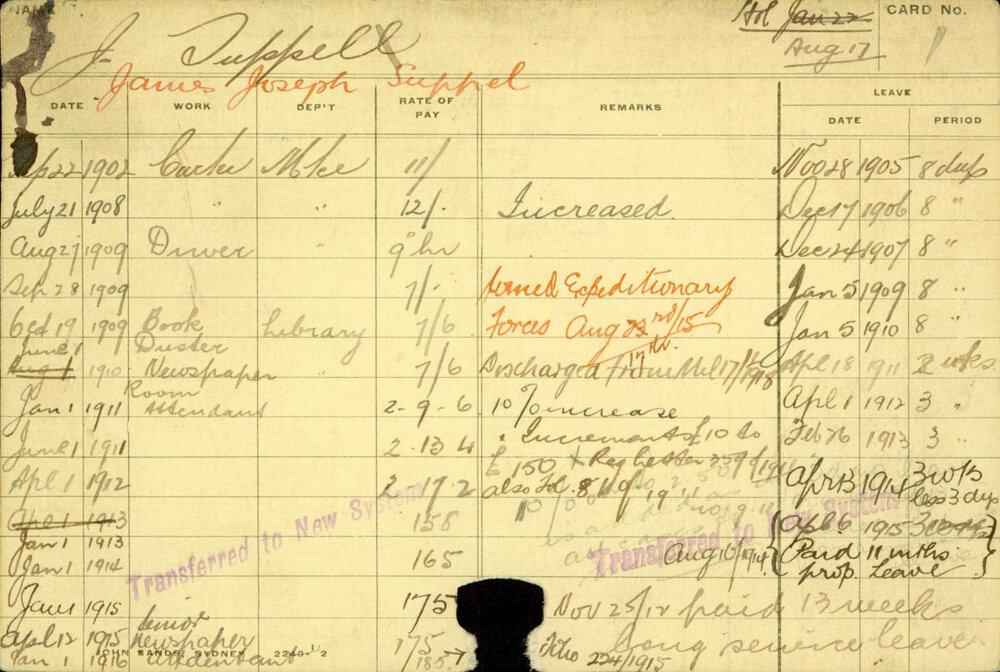 NAME
J. Suppell
Hol Jan 22
Aug 17
CARD No.
1
James Joseph Suppel
DATE WORK DEP'T RATE OF PAY REMARKS LEAVE
DATE PERIOD
Sep 22 1902 Carter Mkt 11/ Nov 28 1905 8 days
July 21 1908 " " 12/- Increased. Dec 17 1906 8 "
Aug 27 1909 Driver " 9d hr Dec 24 1907 8 "
Sep 28 1909 7/- Joined Expeditionary Jan 5 1909 8 "
Oct 19 1909 Book Duster Library 7/6 Forces Aug 23rd/15 Jan 5 1910 8 "
17th.
June 1
Aug 1 1910 Newspaper " 7/6 Discharged from Mil 17/1918 Apl 18 1911 2 wks.
Jan 1 1911 Room Attendant 2-9-6 10% increase Apl 1 1912 3 "
June 1 1911 2.13 4 Increment £10 to Feb 26 1913 3 "
£150 Register
Apl 1 1912 2 17 2 also Fol 8 of 19 Apr 13 1914 3 wks
less 3 days
Apl 1 1913 158 Apl 6 1915 3
Transferred to New System
Transferred to New System
Jan 1 1913
Jan 1 1914 165 Aug 10/1914 Paid 11 mths
prop. Leave
Jan 1 1915 175 Nov 25/12 paid 13 weeks
Apl 12 1915 Senior Newspaper 175 long service leave
JOHN SANDS, SYDNEY 2240-12
Jan 1 1916 Attendant 185 Folio 224/1915